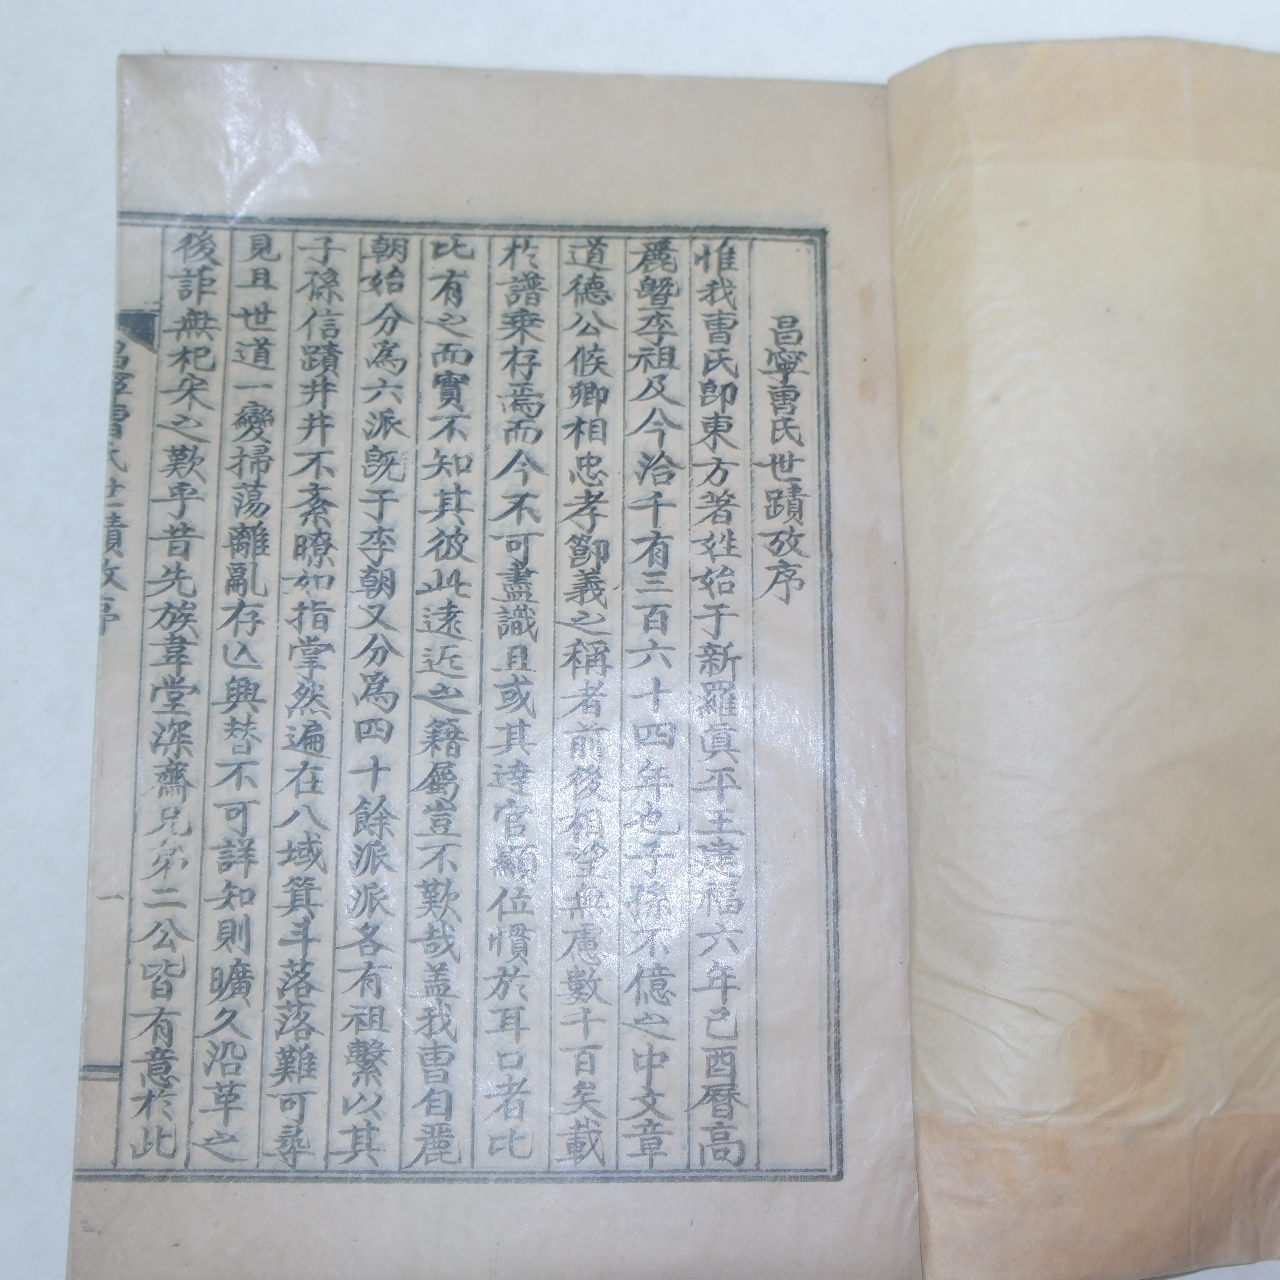 昌寧曺氏世蹟攷序
惟我曺氏卽東方著姓始于新羅眞平王建福六年己酉曆高
麗曁李祖及今洽千有三百六十四年也子孫不億之中文章
道德公候卿相忠孝節義之稱者前後相望無慮數千百矣載
於譜乗存焉而今不可盡識且或其達官顯位慣於耳口者比
比有之而實不知其彼此遠近之籍屬豈不歎哉盖我曺自麗
朝始分爲六派旣于李朝又分爲四十餘派派各有祖繫以其
子孫信蹟井井不紊瞭如指掌然遍在八域箕斗落落難可尋
見且世道一變掃蕩離亂存亾興替不可詳知則曠久沿革之
後詎無杞宋之歎乎昔先族韋堂深齋兄弟二公皆有意於此
昌寧曺氏世蹟攷序
一